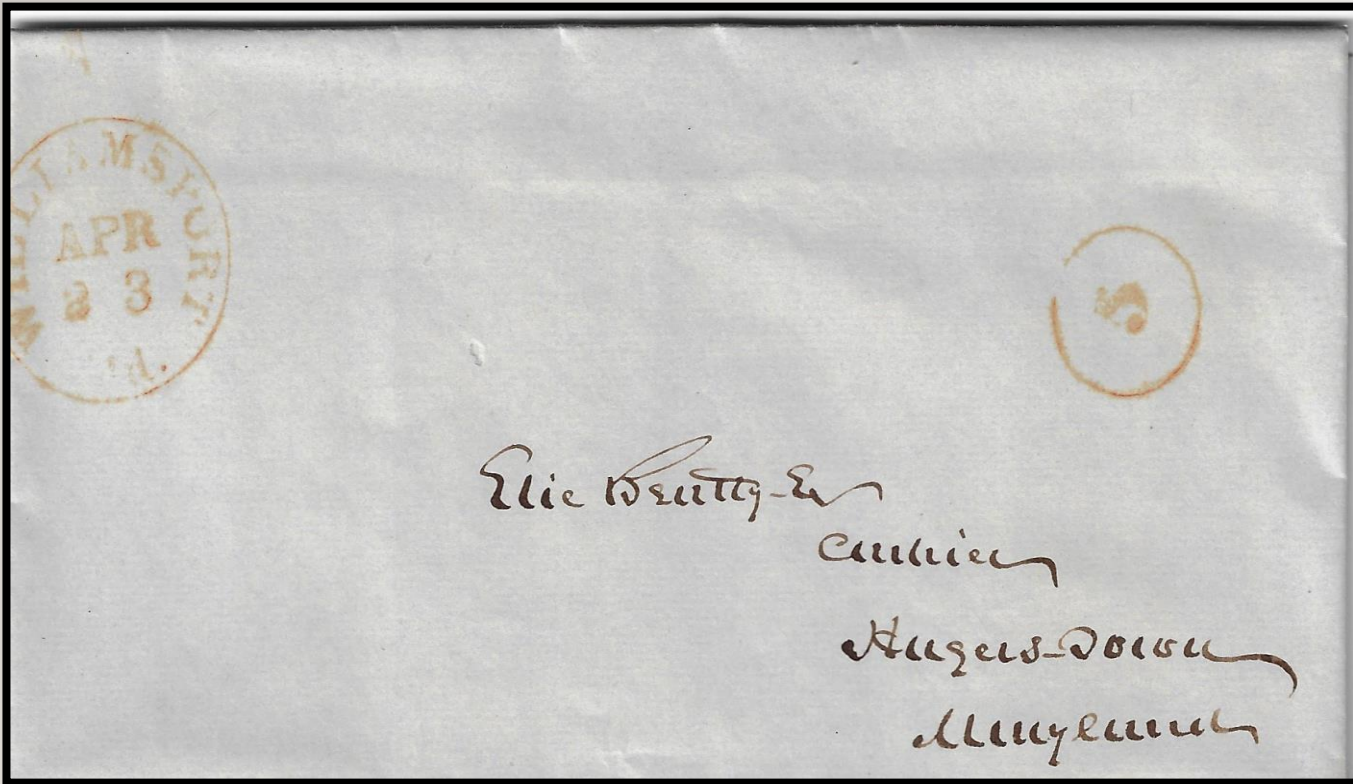 WILLIAMSPORT
APR
23
Md.
5
Elie Beatty Esq
Cashier
Hagers-Town
Maryland